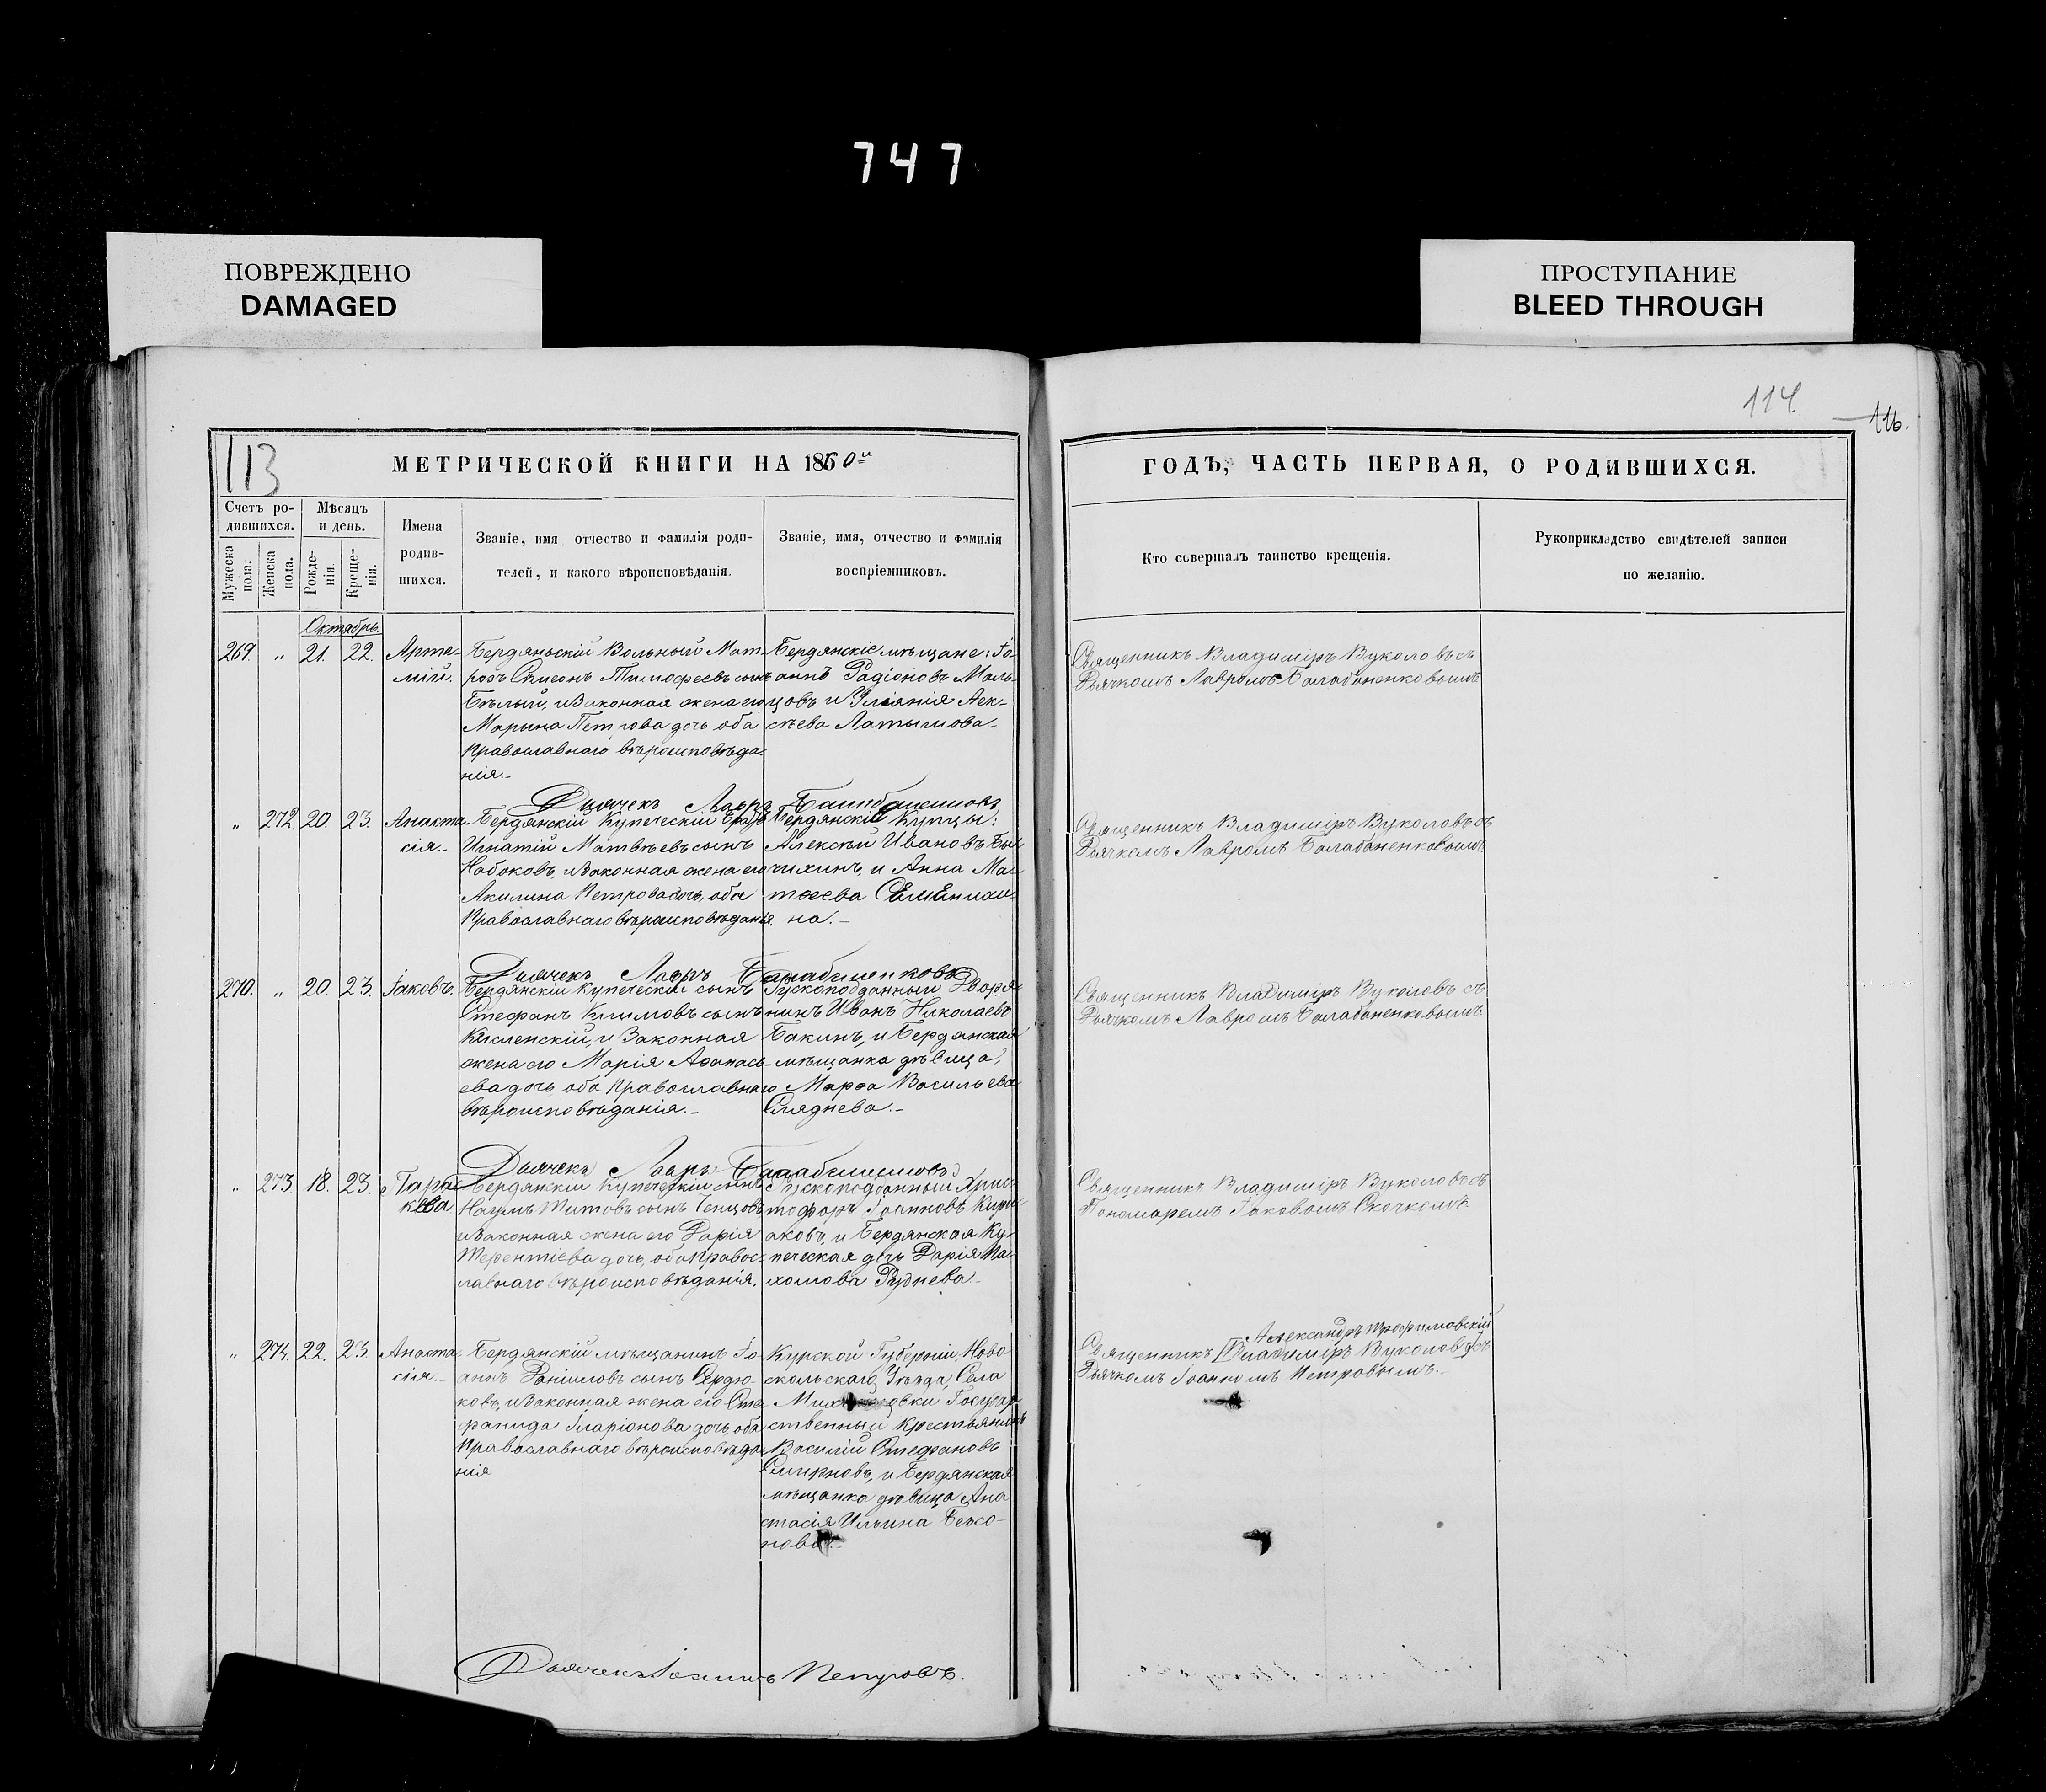 747
ПОВРЕЖДЕНО
DAMAGED
ПРОСТУПАНИЕ
BLEED THROUGH
114.
116.
113
МЕТРИЧЕСКОЙ КНИГИ НА 1860й
ГОДЪ, ЧАСТЬ ПЕРВАЯ, О РОДИВШИХСЯ.
Счетъ ро-
дившихся.
Мужеска
пола.
Женска
пола.
Мѣсяцъ
и день.
Рожде-
нія.
Креще-
нія.
Имена
родив-
шихся.
Званіе, имя отчество и фамилія роди-
телей, и какого вѣроисповѣданія.
Званіе, имя, отчество и фамилія
воспріемниковъ.
Кто совершалъ таинство крещенія.
Рукоприкладство свидѣтелей записи
по желанію.
Октябрь.
269. " 21. 22.
Арте-
мій.
Бердянскій Вольный Мат-
розъ Симеонъ Тимофеевъ сынъ
Бѣлый, и Законная жена его
Марына Петрова дочь оба
Православнаго вѣроисповѣда-
нія.-
Бердянскіе мѣщане: Іо-
аннъ Радіоновъ Маль-
цовъ и Уліянія Алек-
сѣева Латышова.-
Священникъ Владиміръ Вуколовъ съ
Дьячкомъ Лавромъ Балабаненковымъ
Дьячекъ Лавръ
" 272. 20. 23.
Анаста-
сія.-
Бердянскій Купеческій братъ
Игнатій Матвѣевъ сынъ
Набоковъ, и Законная жена его
Акилина Петрова дочь, оба
Православнаго вѣроисповѣданія.
Бердянскіе Купцы:
Алексѣй Ивановъ
и Анна Ма-
твеева
на.-
Священникъ Владиміръ Вуколовъ съ
Дьячкомъ Лавромъ Балабаненковымъ
Дьячекъ Лавръ Балабаненковъ
270. " 20. 23.
Іаковъ.
Бердянскій Купеческій сынъ
Стефанъ Климовъ сынъ
и Законная
жена его Марія Афанась-
ева дочь, оба Православнаго
вѣроисповѣданія.-
Рускоподданный Дворя-
нинъ Иванъ Николаевъ
Бакинъ, и Бердянская
мѣщанка дѣвица,
Марѳа Васильева
Сляднева.-
Священникъ Владиміръ Вуколовъ съ
Дьячкомъ Лавромъ Балабаненковымъ
Дьячекъ Лавръ
" 273. 18. 23.
Пара-
кева
Бердянскій Купеческій сынъ
Наумъ Титовъ сынъ
и Законная жена его Дарія
Терентіева дочь, оба Правос-
лавнаго вѣроисповѣданія.
Рускоподданный Хрис-
тофоръ Іоанновъ Кирі-
аковъ, и Бердянская Ку-
печеская дочь Дарія Па-
хомова Руднева.-
Священникъ Владиміръ Вуколовъ съ
Пономаремъ Іаковомъ Скочкомъ
" 274. 22. 23.
Анаста-
сія.-
Бердянскій мѣщанинъ Іо-
аннъ Даніиловъ сынъ Сердю-
ковъ, и Законная жена его Сте-
фанида Иларіонова дочь, оба
Православнаго вѣроисповѣда-
нія
Курской Губерніи, Ново
скольскаго Уѣзда, Села
Государ
ственный Крестьянинъ
Василій Стефановъ
Смирновъ, и Бердянская
мѣщанка дѣвица Ана
стасія Ильина Безсо-
нова.-
Александръ Трофимовскій
Священникъ [Владиміръ Вуколовъ] съ
Дьячкомъ Іоанномъ Петровымъ.-
Дьячекъ Іоаннъ Петровъ.